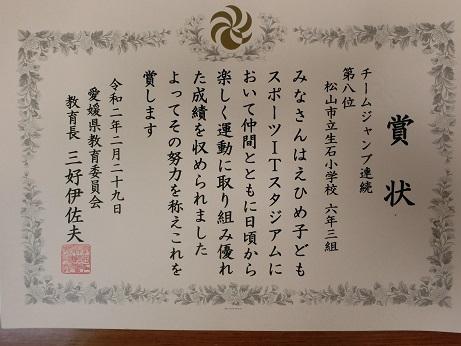 賞状
チームジャンプ連続
第八位
松山市立生石小学校 六年三組
みなさんはえひめ子ども
スポーツITスタジアムに
おいて仲間とともに日頃から
楽しく運動に取り組み優れ
た成績を収められました
よってその努力を称えこれを
賞します
令和二年二月二十九日
愛媛県教育委員会
教育長 三好伊佐夫